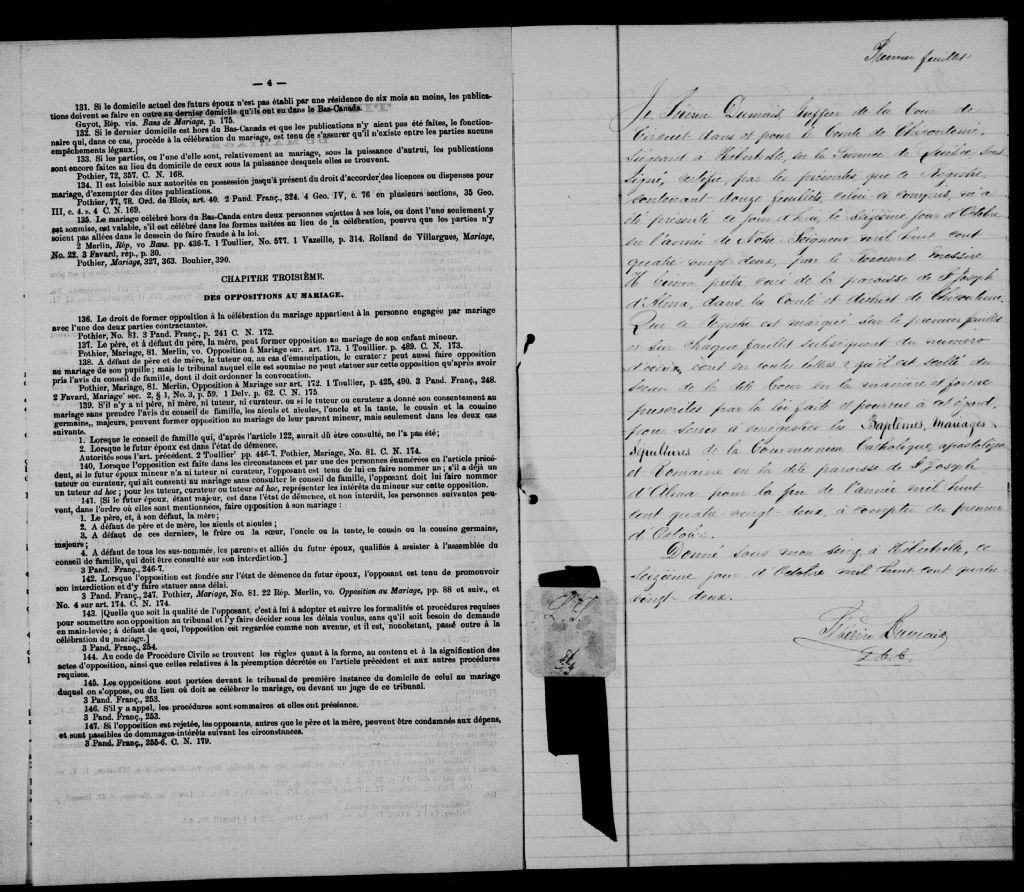 — 4 —
131. Si le domicile actuel des futurs époux n'est pas établi par une résidence de six mois au moins, les publica-
tions doivent se faire en outre au dernier domicile qu'ils ont eu dans le Bas-Canada.
Guyot, Rép. vis. Bans de Mariage, p. 175.
132. Si le dernier domicile est hors du Bas-Canada et que les publications n'y aient pas été faites, le fonction-
naire qui, dans ce cas, procède à la célébration du mariage, est tenu de s'assurer qu'il n'existe entre les parties aucuns
empêchements légaux.
133. Si les parties, ou l'une d'elle sont, relativement au mariage, sous la puissance d'autrui, les publications
sont encore faites au lieu du domicile de ceux sous la puissance desquels elles se trouvent.
Pothier, 72, 357. C. N. 168.
134. Il est loisible aux autorités en possession jusqu'à présent du droit d'accorder des licences ou dispenses pour
mariage, d'exempter des dites publications.
Pothier, 77, 78. Ord. de Blois, art. 40. 2 Pand. Franç., 324. 4 Geo. IV, c. 76 en plusieurs sections, 35 Geo.
III, c. 4. s. 4 C. N. 169.
135. Le mariage célébré hors du Bas-Canda entre deux personnes sujettes à ses lois, ou dont l'une seulement y
est soumise, est valable, s'il est célébré dans les formes usitées au lieu de la célébration, pourvu que les parties n'y
soient pas allées dans le dessein de faire fraude à la loi.
2 Merlin, Rép, vo Bans. pp. 436-7. 1 Toullier, No. 577. 1 Vazeille, p. 314. Rolland de Villargues, Mariage,
No. 22. 3 Favard, rép., p. 30.
Pothier, Mariage, 327, 363. Bouhier, 390.
CHAPITRE TROISIÈME.
DES OPPOSITIONS AU MARIAGE.
136. Le droit de former opposition à la célébration du mariage appartient à la personne engagée par mariage
avec l'une des deux parties contractantes.
Pothier, No. 81. 3 Pand. Franç., p. 241 C. N. 172.
137. Le père, et à défaut du père, la mère, peut former opposition au mariage de son enfant mineur.
Pothier, Mariage, 81. Merlin, vo. Opposition à Mariage sur. art. 173. 1 Toullier. p. 489. C. N. 173.
138. A défaut de père et de mère, le tuteur ou, au cas d'émancipation, le curateur peut aussi faire opposition
au mariage de son pupille; mais le tribunal auquel elle est soumise ne peut statuer sur cette opposition qu'après avoir
pris l'avis du conseil de famille, dont il doit ordonner la convocation.
Pothier, Mariage, 81. Merlin, Opposition à Mariage sur art. 172. 1 Toullier, p. 425, 490. 3 Pand. Franç., 248.
2 Favard, Mariage' sec. 2, § 1, No. 3, p. 59. 1 Delv. p. 62. C. N. 175.
139. S'il n'y a ni père, ni mère, ni tuteur, ni curateur. ou si le tuteur ou curateur a donné son consentement au
mariage sans prendre l'avis du conseil de famille, les aïeuls et aïeules, l'oncle et la tante, le cousin et la cousine
germains,, majeurs, peuvent former opposition au mariage de leur parent mineur, mais seulement dans les deux cas
suivants.
1. Lorsque le conseil de famille qui, d'après l'article 122, aurait dû être consulté, ne l'a pas été;
2. Lorsque le futur époux est dans l'état de démence.
Autorités sous l'art. précédent. 2 Toullier' pp. 446-7. Pothier, Mariage, No. 81. C. N. 174.
140, Lorsque l'opposition est faite dans les circonstances et par une des personnes énumérées en l'article précé-
dent, si le futur époux mineur n'a ni tuteur ni curateur, l'opposant est tenu de lui en faire nommer un; s'il a déjà un
tuteur ou curateur, qui ait consenti au mariage sans consulter le conseil de famille, l'opposant doit lui faire nommer
un tuteur ad hoc; pour les tuteur, curateur ou tuteur ad hoc, représenter les intérêts du mineur sur cette opposition.
141. [Si le futur époux, étant majeur, est dans l'état de démence, et non interdit, les personnes suivantes peu-
vent, dans l'ordre où elles sont mentionnées, faire opposition à son mariage:
1. Le père, et, à son défaut, la mère;
2. A défaut de père et de mère, les aïeuls et aïeules;
3. A défaut de ces derniers, le frère ou la sœur, l'oncle ou la tante, le cousin ou la cousine germains,
majeurs;
4. A défaut de tous les sus-nommés, les parents et alliés du futur époux, qualifiés à assister à l'assemblée du
conseil de famille, qui doit être consulté sur son interdiction.]
3 Pand. Franç., 246-7.
142. Lorsque l'opposition est fondée sur l'état de démence du futur époux, l'opposant est tenu de promouvoir
son interdiction et d'y faire statuer sans délai.
3 Pand. Franç., 247. Pothier, Mariage, No. 81. 22 Rép. Merlin, vo. Opposition au Mariage, pp. 88 et suiv., et
No. 4 sur art. 174. C. N. 174.
143. [Quelle que soit la qualité de l'opposant, c'est à lui à adopter et suivre les formalités et procédures requises
pour soumettre son opposition au tribunal et l'y faire décider sous les délais voulus, sans qu'il soit besoin de demande
en main-levée; à défaut de quoi, l'opposition est regardée comme non avenue, et il est, nonobstant, passé outre à la
célébration du mariage.]
3 Pand. Franç., 254.
144. Au code de Procédure Civile se trouvent les règles quant à la forme, au contenu et à la signification des
actes d'opposition, ainsi que celles relatives à la péremption décrétée en l'article précédent et aux autres procédures
requises.
145. Les oppositions sont portées devant le tribunal de première instance du domicile de celui au mariage
duquel on s'oppose, ou du lieu où doit se célébrer le mariage, ou devant un juge de ce tribunal.
3 Pand. Franç., 253.
146. S'il y a appel, les procédures sont sommaires et elles ont préséance.
3 Pand. Franç., 253.
147. Si l'opposition est rejetée, les opposants, autres que le père et la mère, peuvent être condamnés aux dépens,
et sont passibles de dommages-intérêts suivant les circonstances.
3 Pand. Franç., 255-6. C. N. 179.
Premier feuillet
Je, Dumais, Greffier de la Cour de
Circuit dans et pour le Comté de Chicoutimi,
Siégeant à Hébertville, en la Province de Québec Sous
Signé, certifie, par les présentes que ce Registre,
contenant douze feuillets, celui-ci compris, m'a
été présenté ce jour d'hui, le Seizième jour d'Octobre
en l'année de Notre-Seigneur mil huit cent
quatre vingt deux, par le Révérend Messire
prêtre, curé de la paroisse de St Joseph
d'Alma, dans les Comté et district de Chicoutimi
Que ce Registre est marqué sur le premier feuillet
et sur chaque feuillet subséquent du numéro
écrit en toutes lettres & qu'il est scellé du
Sceau de la dite Cour en la manière et forme
prescrites par la loi faite et pourvue à cet égard,
pour servir à enregistrer les Baptêmes, Mariages &
Sépultures de la Communion Catholique, apostolique
et Romaine en la dite paroisse de St Joseph
d'Alma pour la fin de l'année mil huit
cent quatre-vingt-deux, à compter du premier
d'Octobre.
Donné sous mon seing à Hébertville, ce
seizième jour d'Octobre mil huit cent quatre-
vingt-deux.
Dumais
G. C. C.